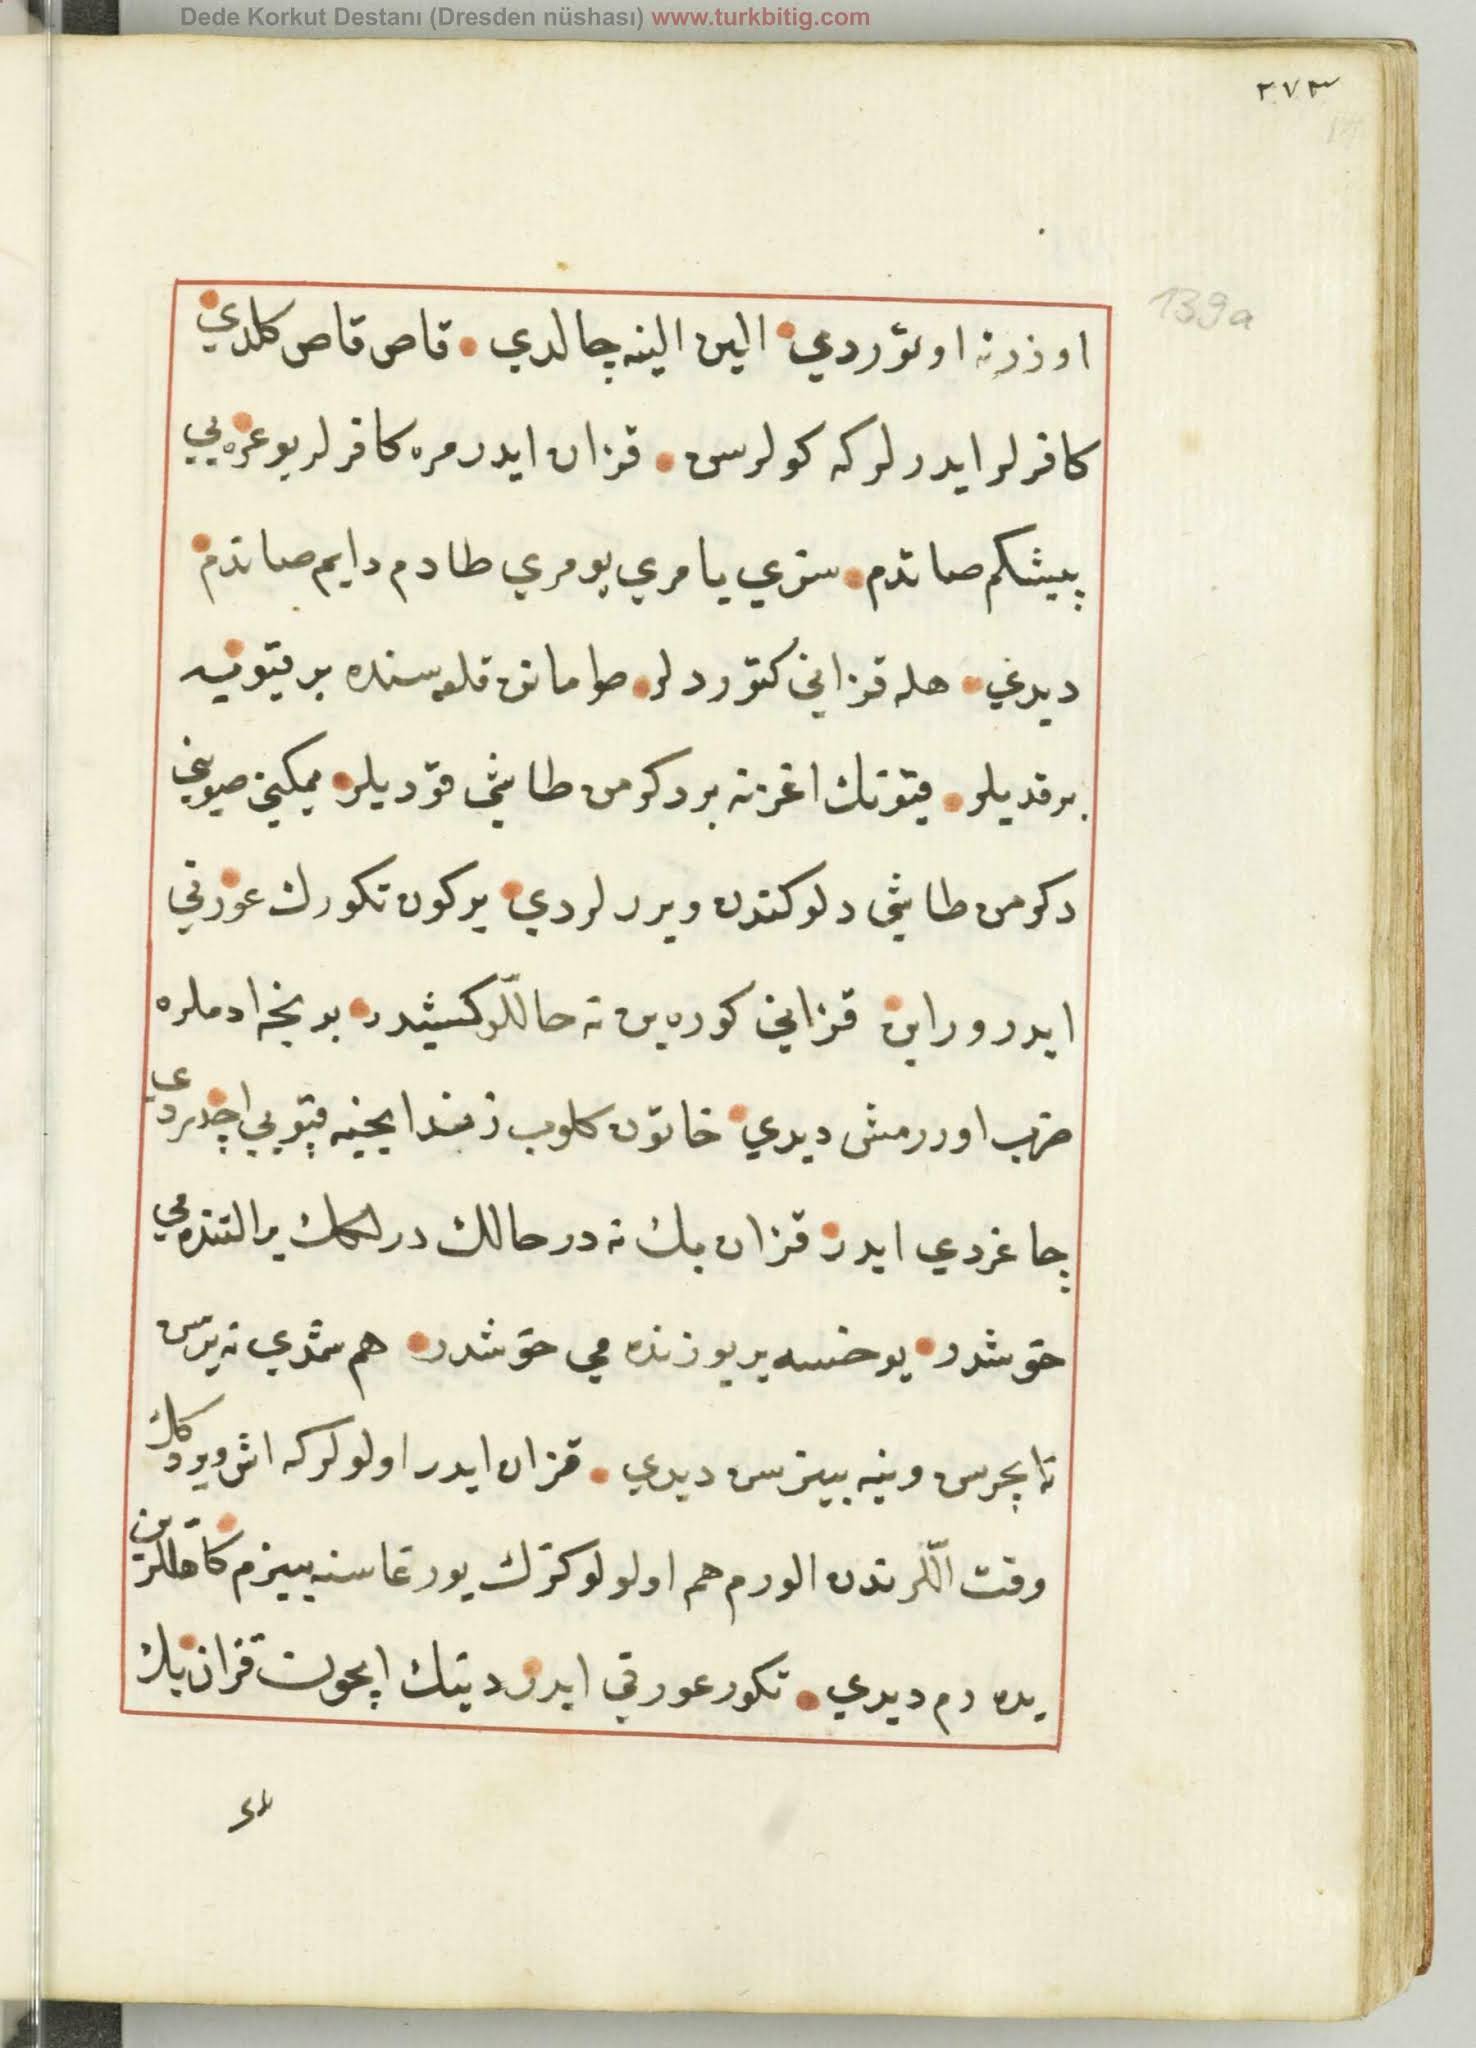 Dede Korkut Destanı (Dresden nüshası) www.turkbitig.com
۲۷۳
139a
اوزرنه اوتوردي الین الینه چالدي قاص قاص کلدي
کافرلر ایدرلر که کولرسن قزان ایدر مره کافرلر بو عربه یي
پیشکم صاندم سزي یامري یومري طادم دایم صاندم
دیدي هله قزاني کتوردلر طومانن قلعه سنده بر قیویه
برقدیلر قیونك اغزنه بر دکرمن طاشي قودیلر یمکین صوین
دکرمن طاشي دلوکندن ویررلردي بر کون تکورك عورتي
ایدر وراین قزاني کوره ین نه حاللو کشیدر بو نجه ادملره
ضرب اوررمش دیدي خاتون کلوب زندانجیه قپویي اچدردي
چاغردي ایدر قزان بك نه در حالك درلکك یر التنده مي
خوشدر یوخسه یر یوزنده مي خوشدر هم شمدي نه یرسن
نه ایچرسن ونیه بینرسن دیدي قزان ایدر اولولرکه اش ویردکك
وقت اللرندن الورم هم اولولرکزك یورغاسنه بینرم کاهللرین
یده رم دیدي تکور عورتي ایدر دینك ایچون قزان بك